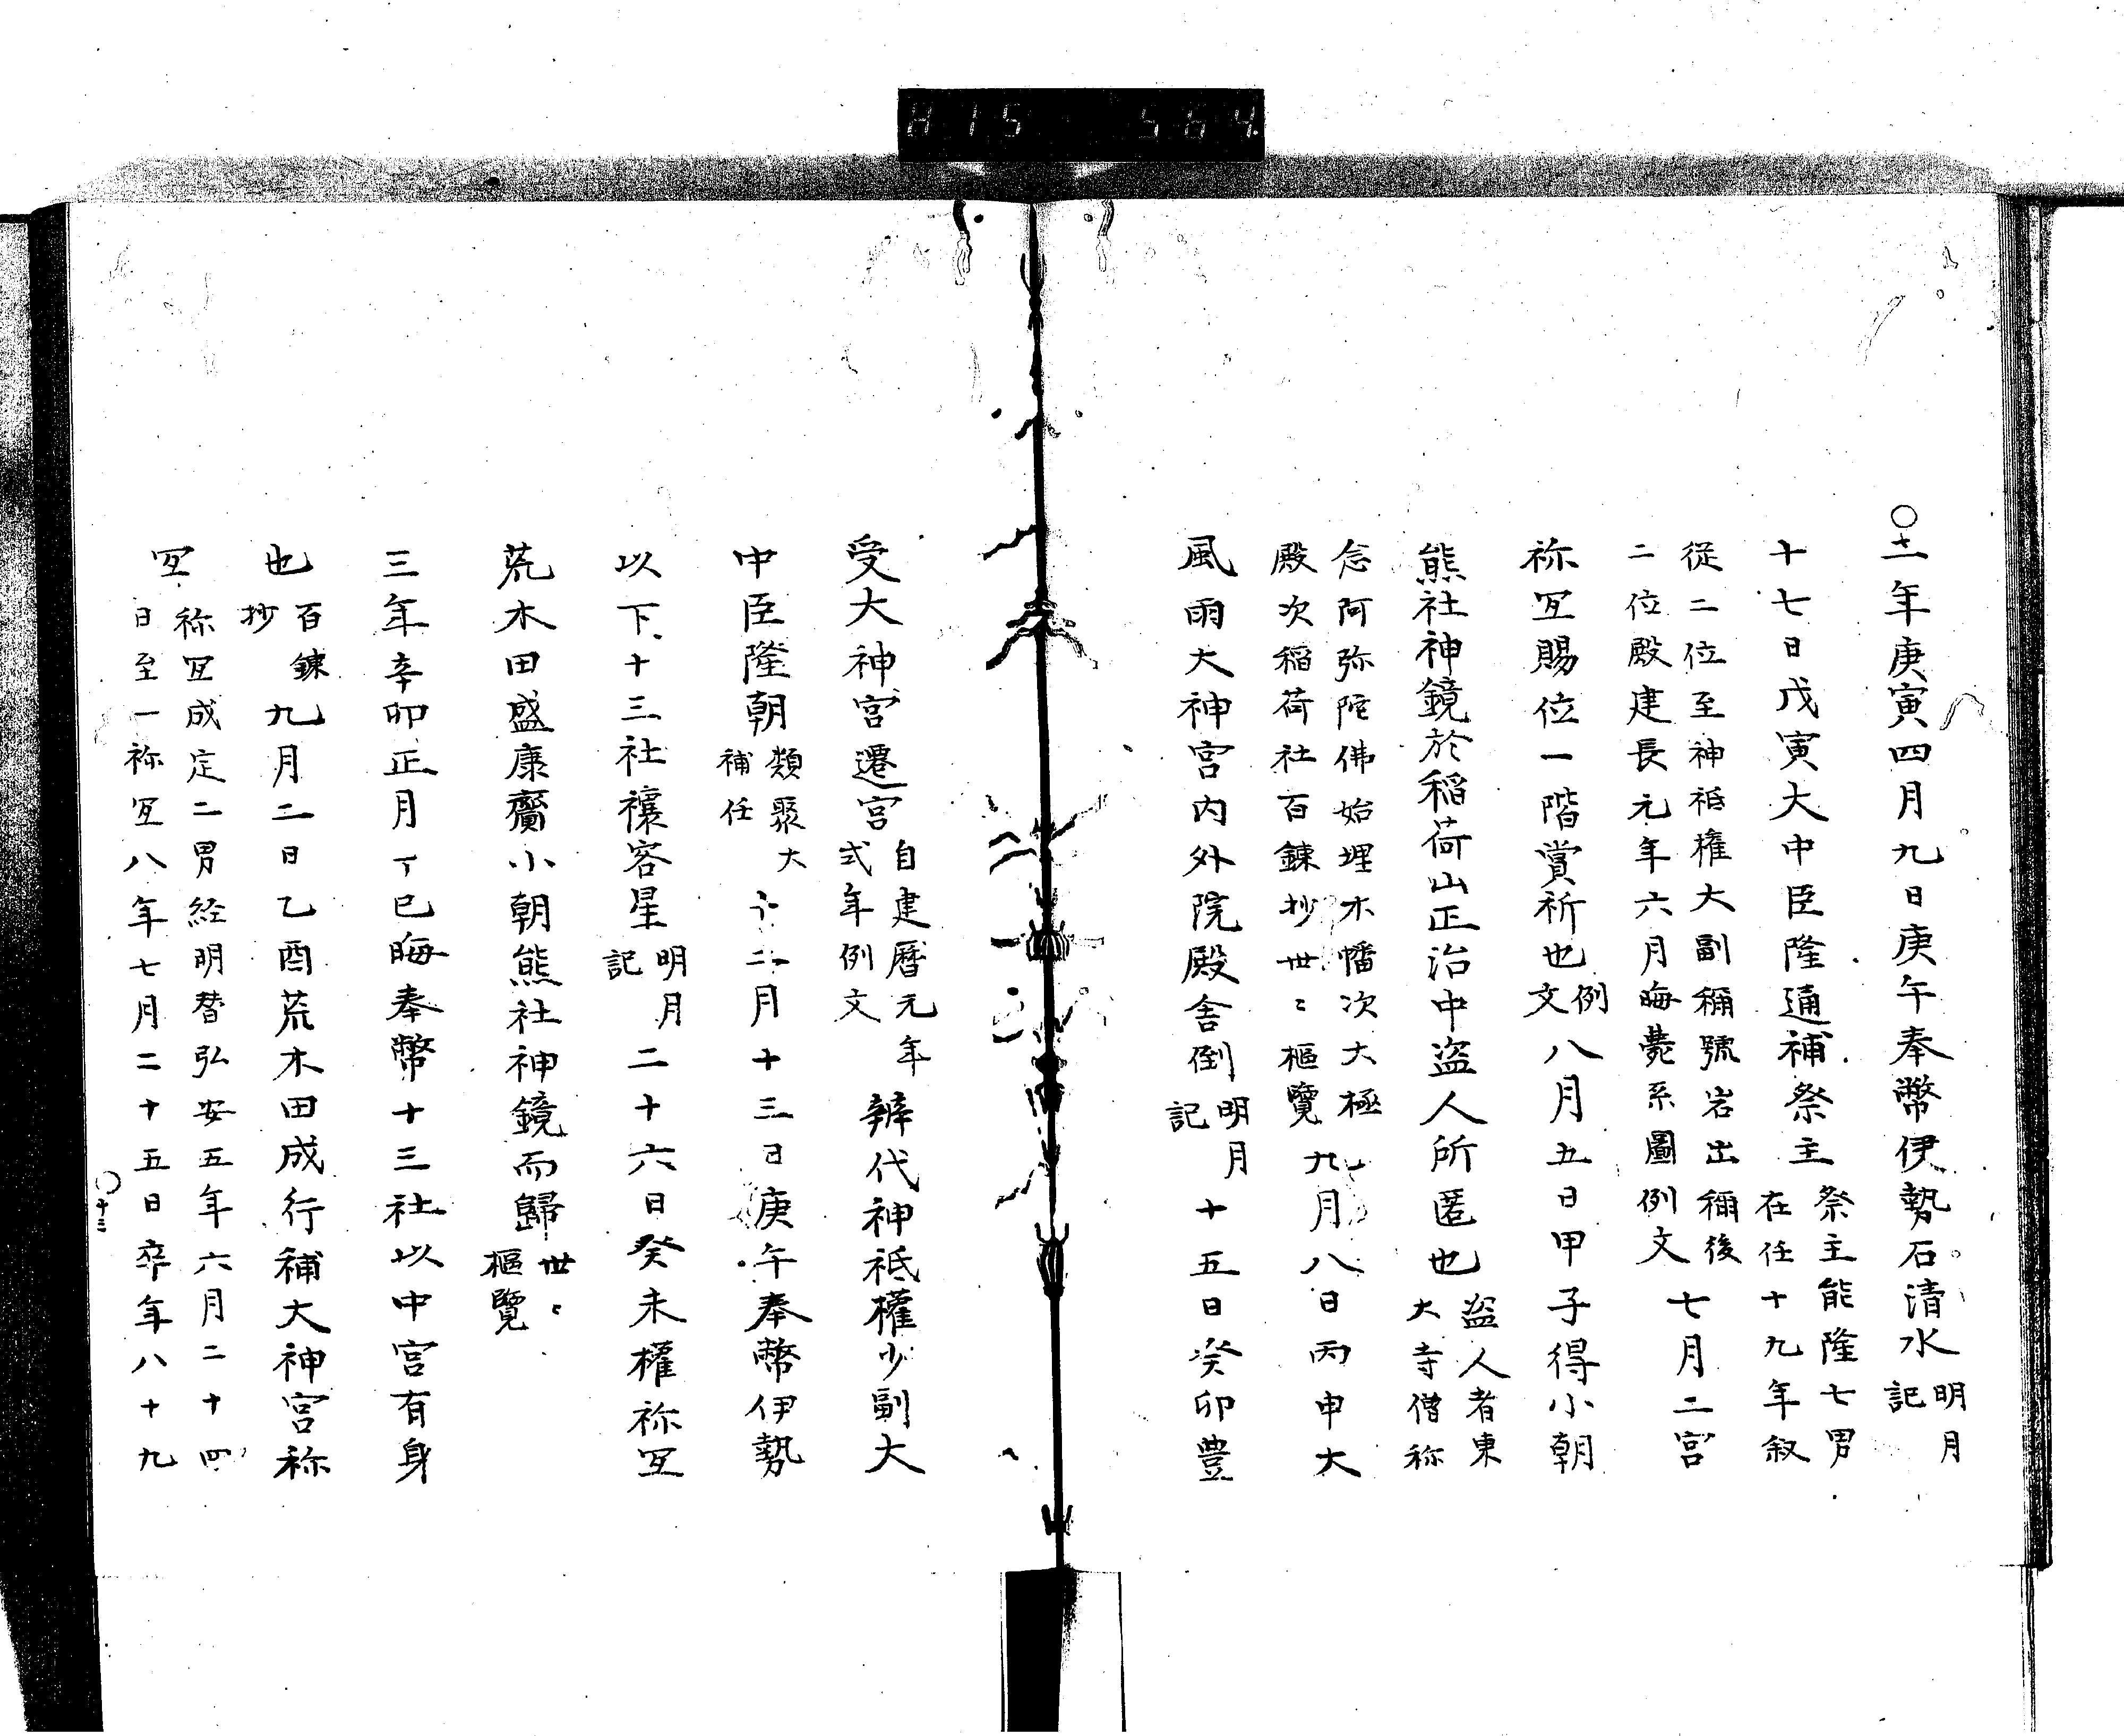 二年庚寅四月九日庚午奉幣伊勢石清水明月記
十七日戊寅大中臣隆通補祭主祭主能隆七男在任十九年叙
従二位至神祗権大副稱號岩出稱後二位殿建長元年六月晦薨系圖例文七月二宮
祢冝賜位一階賞祈也例文八月五日甲子得小朝
熊社神鏡於稲荷山正治中盗人所匿也盗人者東大寺僧称
念阿弥陀佛始埋木幡次大極殿次稲荷社百錬抄世〻樞覽九月八日丙申大
風雨大神宮内外院殿舎倒明月記十五日癸卯豊
受大神宮遷宮自建曆元年弍年例文辨代神祗權少副大
中臣隆朝類聚大補任十二月十三日庚午奉幣伊勢
以下十三社禳客星明月記二十六日癸未權祢冝
荒木田盛康齎小朝熊社神鏡而歸世〻樞覽
三年辛卯正月丁巳晦奉幣十三社以中宮有身
也百錬抄九月二日乙酉荒木田成行補大神宮祢
冝祢冝成定二男経明替弘安五年六月二十四日至一祢冝八年七月二十五日卒年八十九
十三
815 564